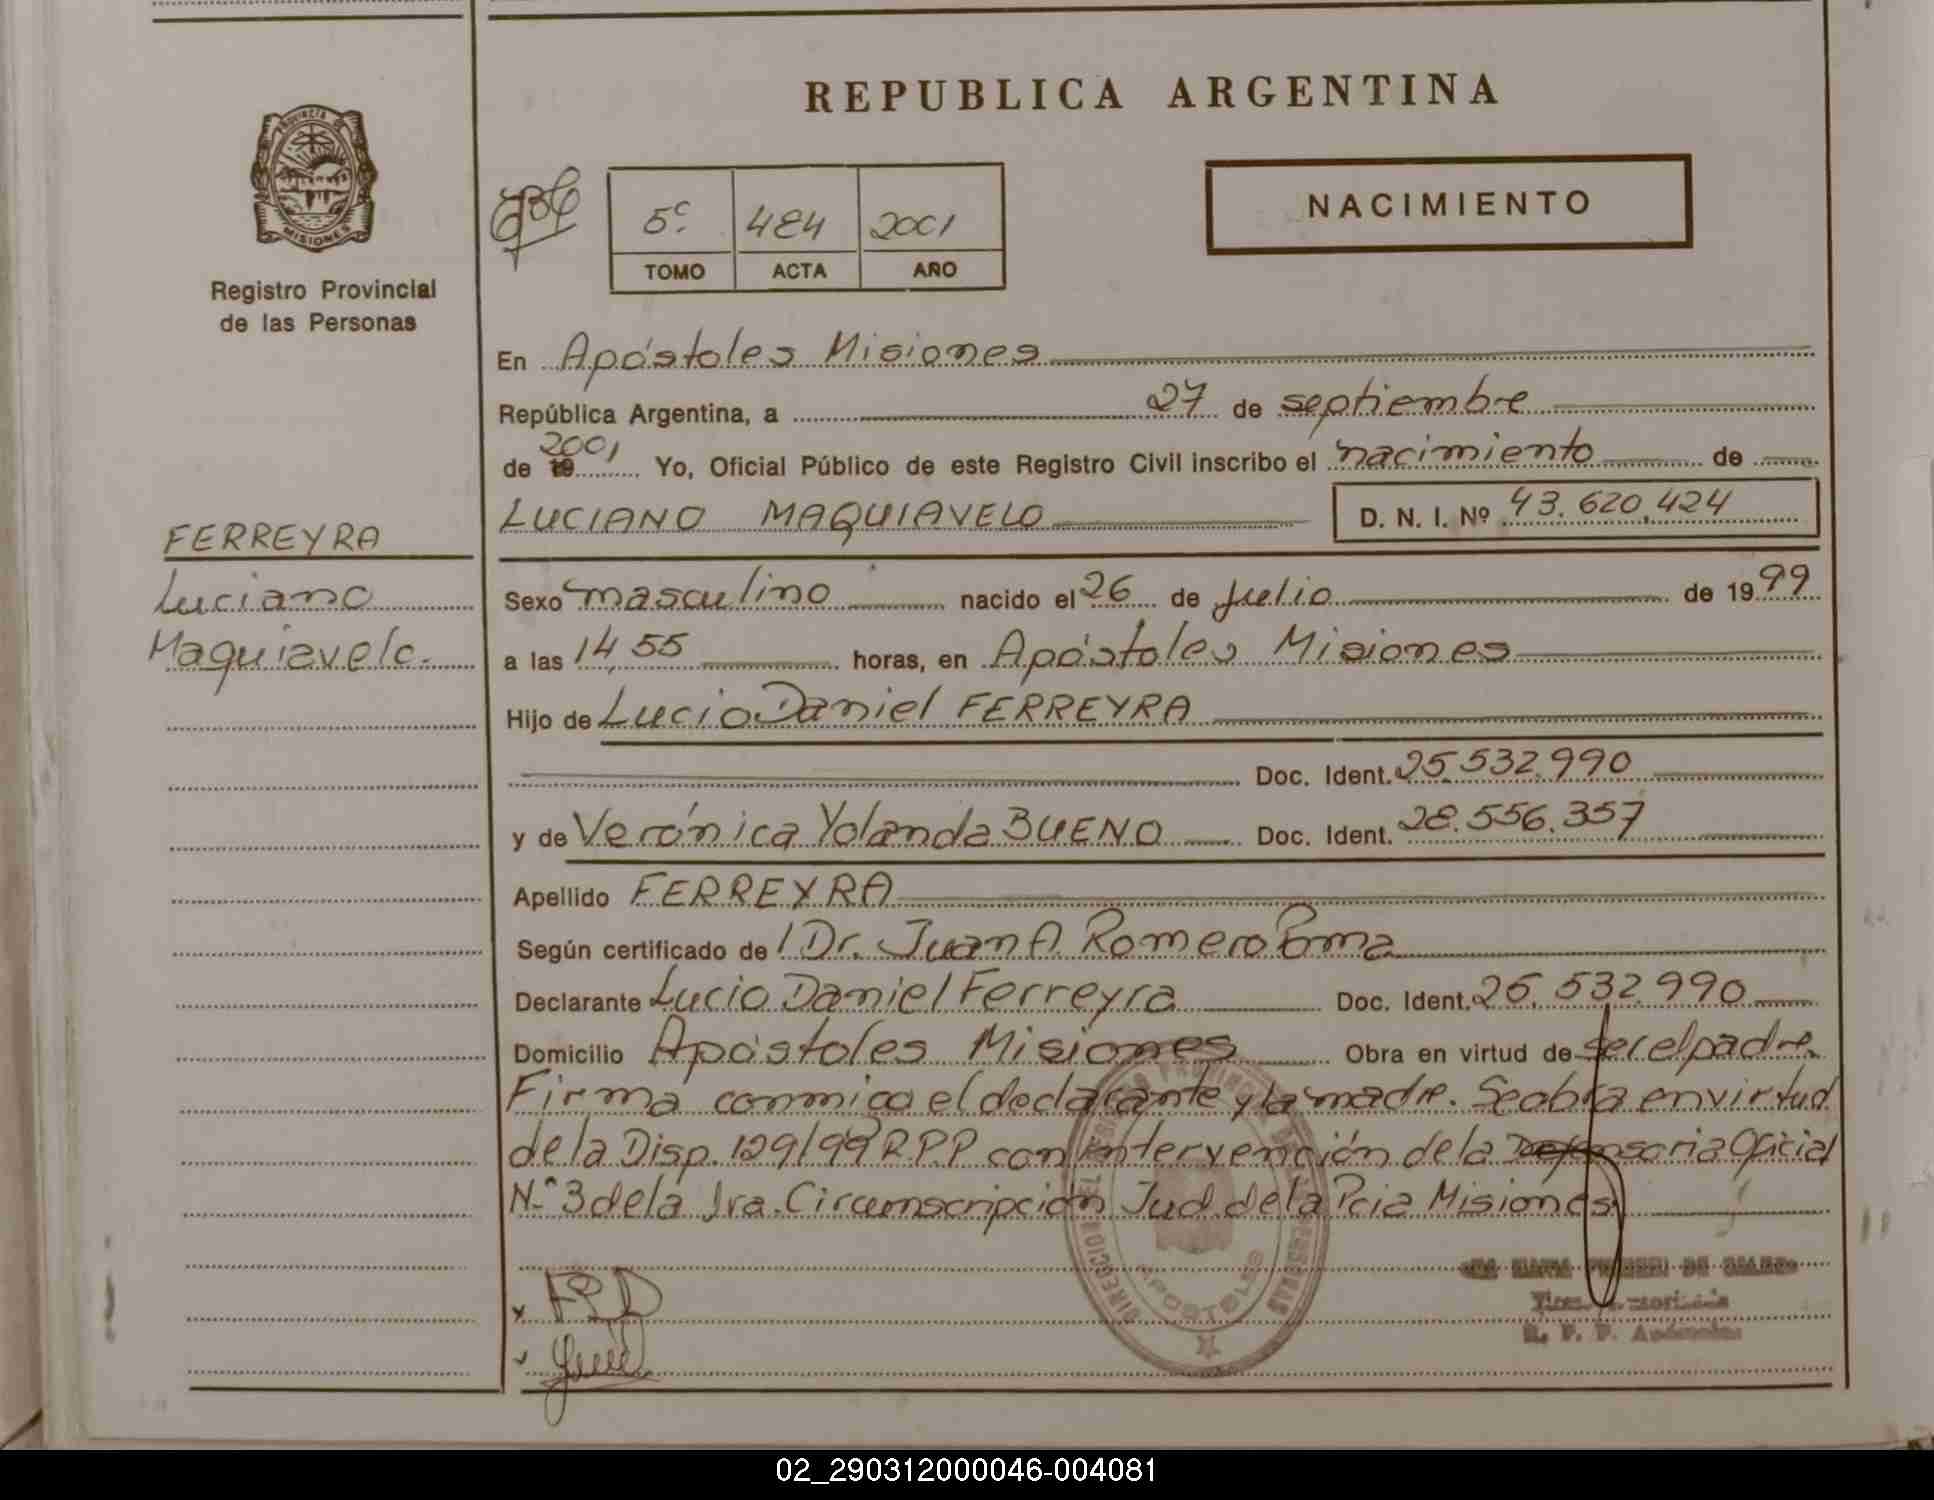 REPUBLICA ARGENTINA
PROVINCIA DE
MISIONES
Registro Provincial
de las Personas
5º 484 2001
TOMO ACTA AÑO
NACIMIENTO
En Apóstoles Misiones
República Argentina, a 27 de septiembre
de 19 2001 Yo, Oficial Público de este Registro Civil inscribo el nacimiento de
LUCIANO MAQUIAVELO D. N. I. Nº 43.620.424
FERREYRA
Luciano
Maquiavelo.
Sexo masculino nacido el 26 de Julio de 1999
a las 14,55 horas, en Apóstoles Misiones
Hijo de Lucio Daniel FERREYRA
Doc. Ident. 25.532.990
y de Verónica Yolanda BUENO Doc. Ident. 28.556.357
Apellido FERREYRA
Según certificado de Dr. Juan A. Romero Poma
Declarante Lucio Daniel Ferreyra Doc. Ident. 25.532.990
Domicilio Apóstoles Misiones Obra en virtud de ser el padre.
Firma conmigo el declarante y la madre. Se obra en virtud
de la Disp. 129/99 R.P.P con intervención de la Defensoria Oficial
N.º 3 de la 1ra. Circumscripción Jud. de la Pcia Misiones
APOSTOLES
R. P. P. Apóstoles
02_290312000046-004081